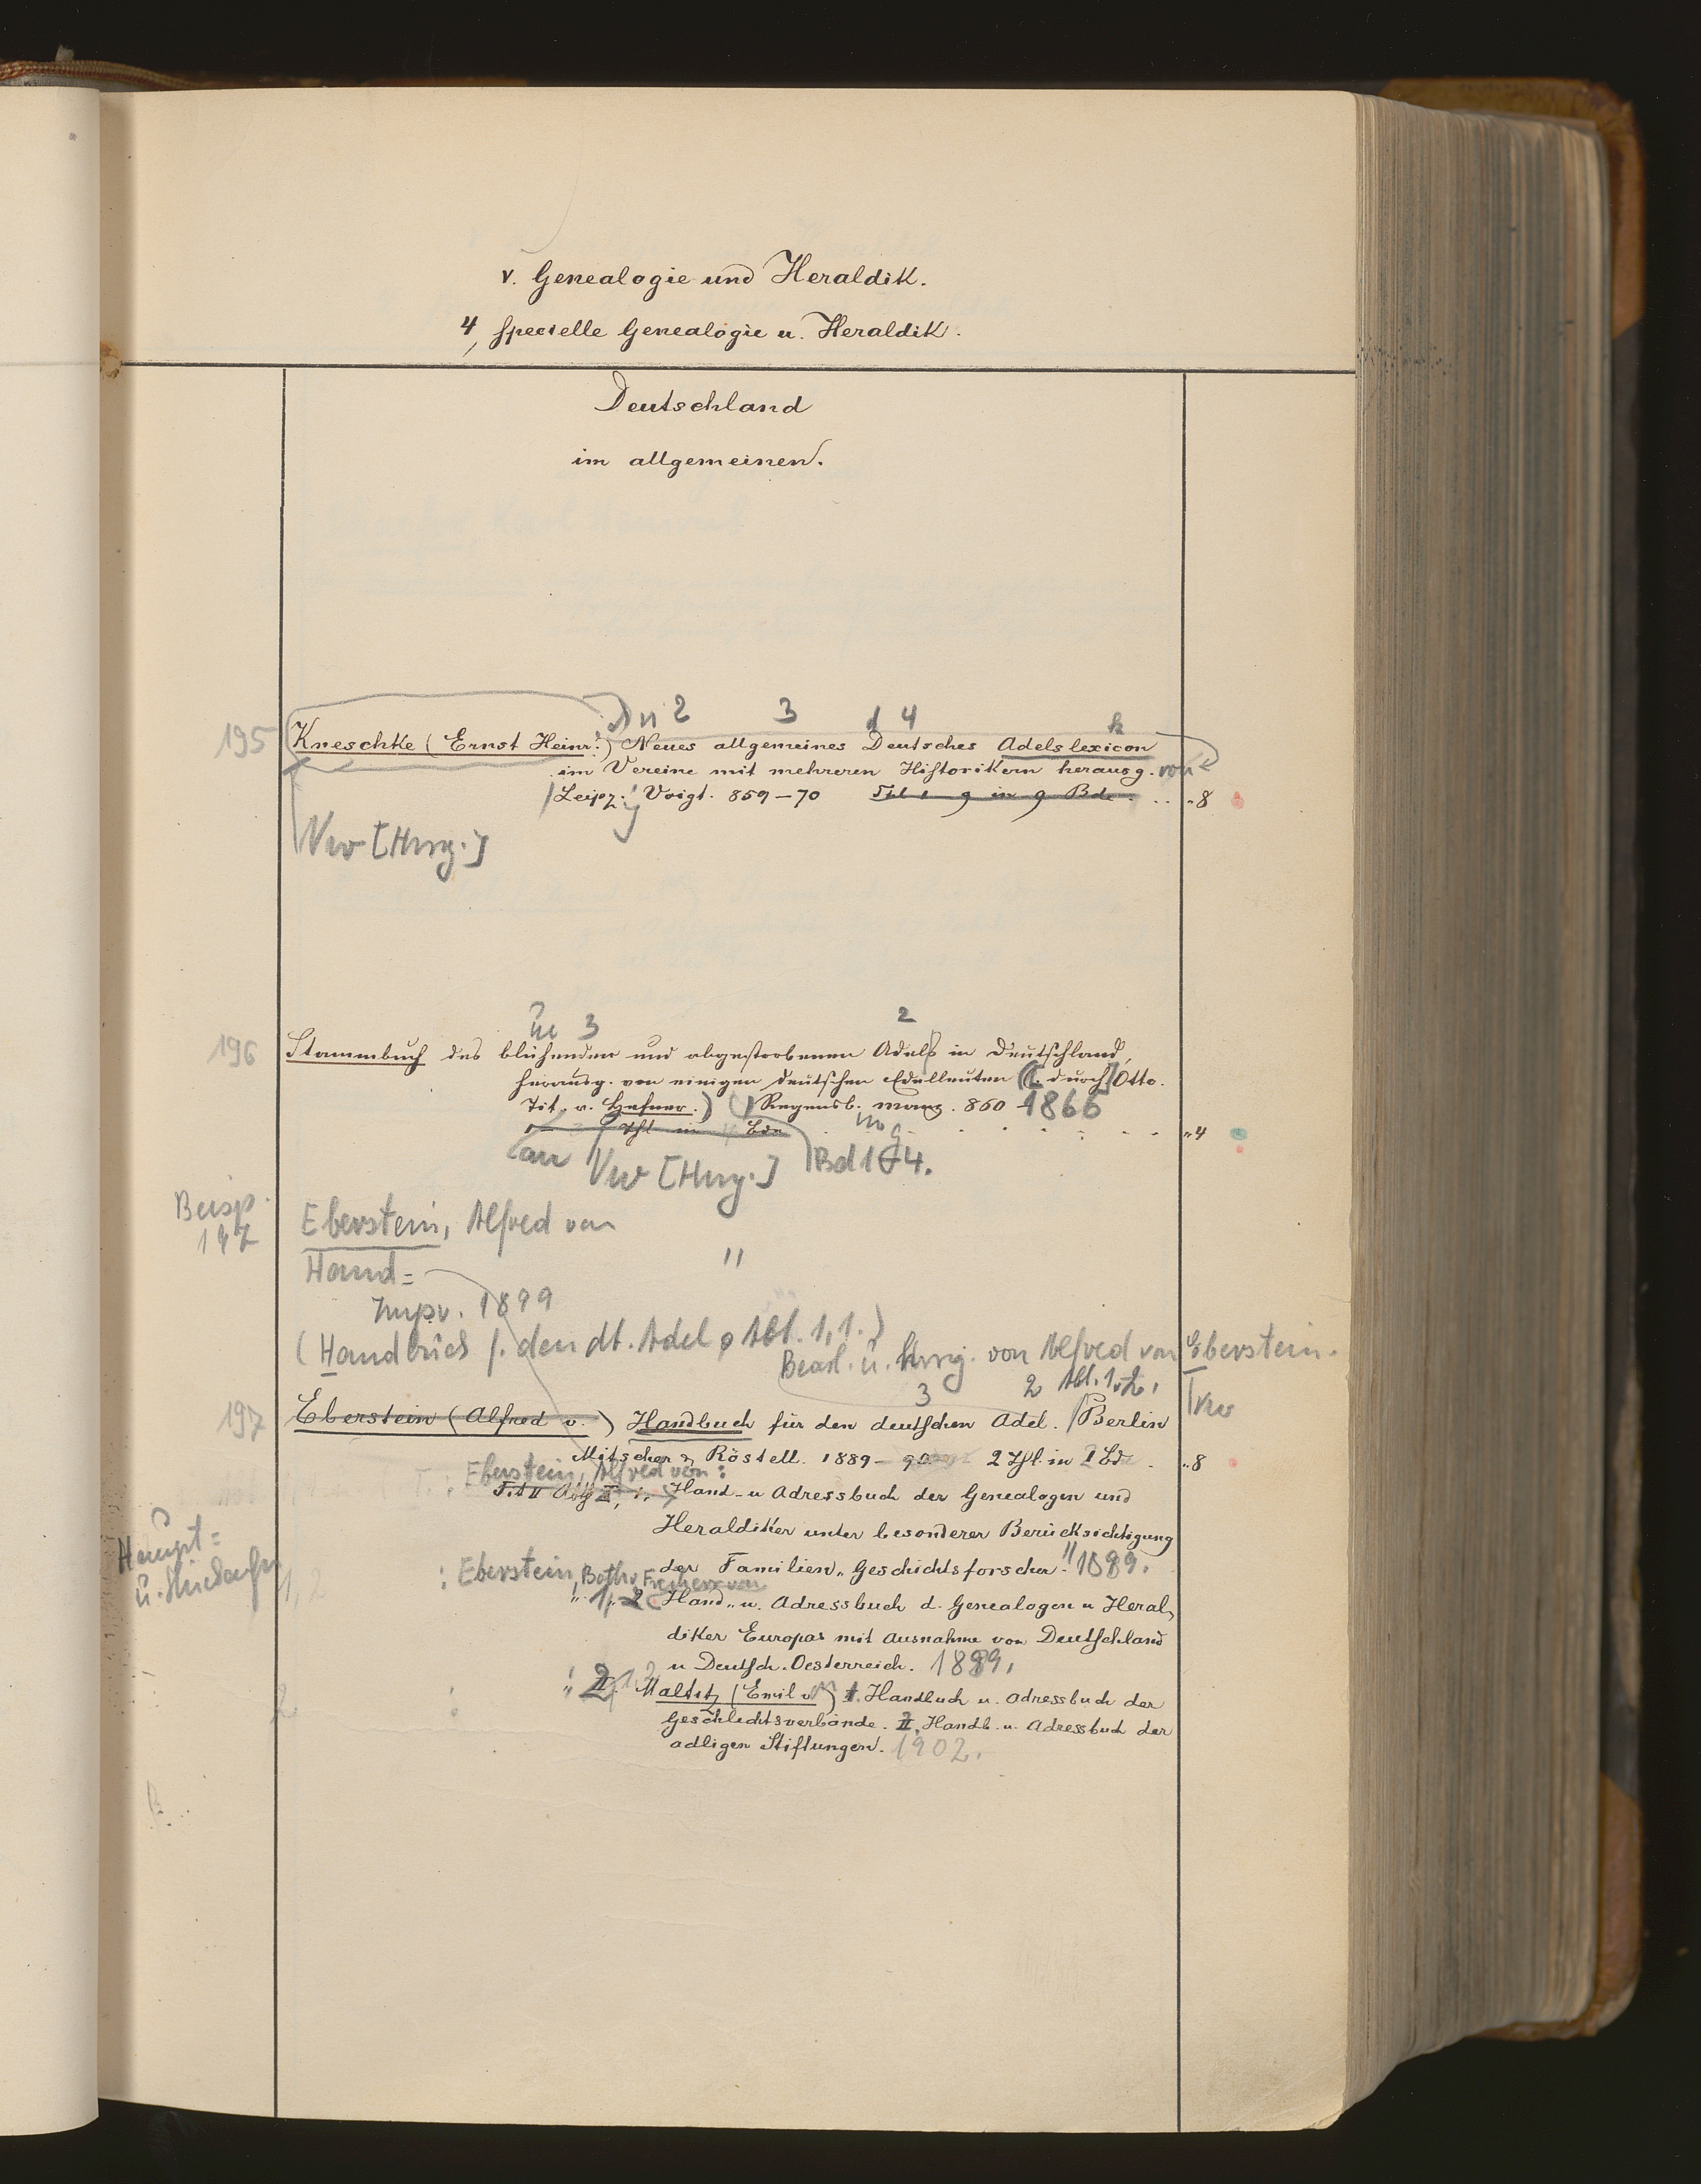 v. Genealogie und Heraldik.
4, specielle Genealogie u. Heraldik.
Deutschland
im allgemeinen.
n 2 3 d 4 k
195 Kneschke (Ernst Heinr.) Neues allgemeines Deutsches Adelslexicon
im Vereine mit mehreren Historikern herausg. von
Leipz. Voigt. 859–70 Thl 1–9 in 9 Bde. „8
Vw [Hrsg.]
3 2
196 Stammbuch des blühenden und abgestorbenen Adels in Deutschland,
herausg. von einigen deutschen Edelleuten (l. durch] Otto.
Tit. v. Hefner.) Regensb. Manz. 860–1866
Thl. in 4 Bde „4
an Vw [Hrsg.] Bd 1–4.
Beisp.
197
Eberstein, Alfred von
Hand= "
Impr. 1899
(Handbuch f. den dt. Adel, Abt. 1,1.)
Bearb. u. hrsg. von Alfred von Eberstein.
3 2 Abt. 1.2.
197 Eberstein (Alfred v.) Handbuch für den deutschen Adel. Berlin
Mitscher & Röstell. 1889–90 2 Thl. in 1 Bd. „8
Eberstein, Alfred von:
Hand- u Adressbuch der Genealogen und
Heraldiker unter besonderer Berücksichtigung
Haupt=
der Familien„Geschichtsforscher. 1889.
: Eberstein, Botho Freiherr von
1, 2
„ 1, 2 Hand„ u. Adressbuch d. Genealogen u Heral,
diker Europas mit Ausnahme von Deutschland
u Deutsch.Oesterreich. 1889.
2 : Maltitz (Emil v) 1. Handbuch u. Adressbuch der
Geschlechtsverbände. 2. Handb. u. Adressbuch der
adligen Stiftungen. 1902.